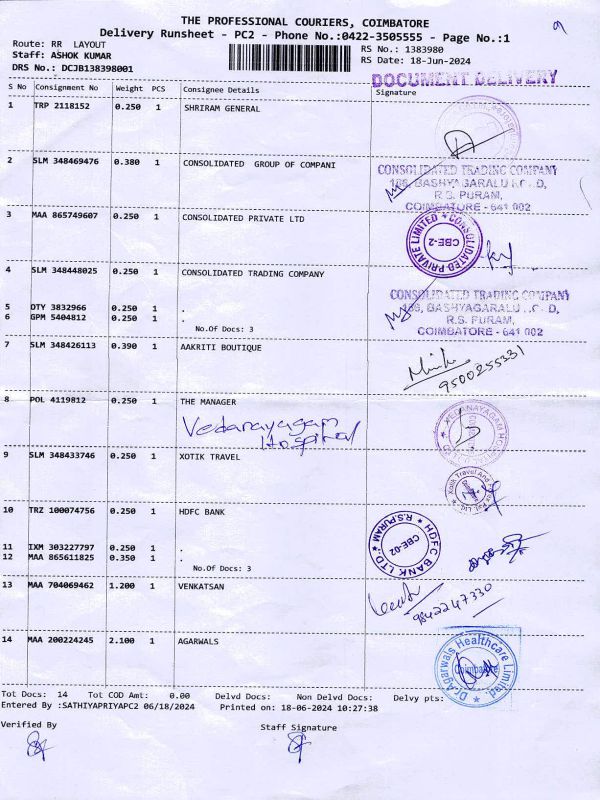 THE PROFESSIONAL COURIERS, COIMBATORE
Delivery Runsheet - PC2 - Phone No.:0422-3505555 - Page No.:1
Route: RR LAYOUT
RS No.: 1383980
Staff: ASHOK KUMAR
RS Date: 18-Jun-2024
DRS No.: DCJB138398001
DOCUMENT DELIVERY
S No Consignment No Weight PCS Consignee Details Signature
1 TRP 2118152 0.250 1 SHRIRAM GENERAL
2 SLM 348469476 0.380 1 CONSOLIDATED GROUP OF COMPANI
CONSOLIDATED TRADING COMPANY
R.S. PURAM,
COIMBATORE - 641 002
3 MAA 865749607 0.250 1 CONSOLIDATED PRIVATE LTD
CONSOLIDATED PRIVATE LIMITED
CBE-2
4 SLM 348448025 0.250 1 CONSOLIDATED TRADING COMPANY
CONSOLIDATED TRADING COMPANY
R.S. PURAM,
COIMBATORE - 641 002
5 DTY 3832966 0.250 1 .
6 GPM 5404812 0.250 1 .
No.Of Docs: 3
7 SLM 348426113 0.390 1 AAKRITI BOUTIQUE
9500255331
8 POL 4119812 0.250 1 THE MANAGER
Vedanayagam
Hospital
9 SLM 348433746 0.250 1 XOTIK TRAVEL
10 TRZ 100074756 0.250 1 HDFC BANK
HDFC BANK LTD
R.S.PURAM
CBE-02
11 IXM 303227797 0.250 1 .
12 MAA 865611825 0.350 1 .
No.Of Docs: 3
13 MAA 704069462 1.200 1 VENKATSAN
9842247330
14 MAA 200224245 2.100 1 AGARWALS
Dr.Agarwals Healthcare Limited
Coimbatore
Tot Docs: 14 Tot COD Amt: 0.00 Delvd Docs: Non Delvd Docs: Delvy pts:
Entered By :SATHIYAPRIYAPC2 06/18/2024 Printed on: 18-06-2024 10:27:38
Verified By Staff Signature